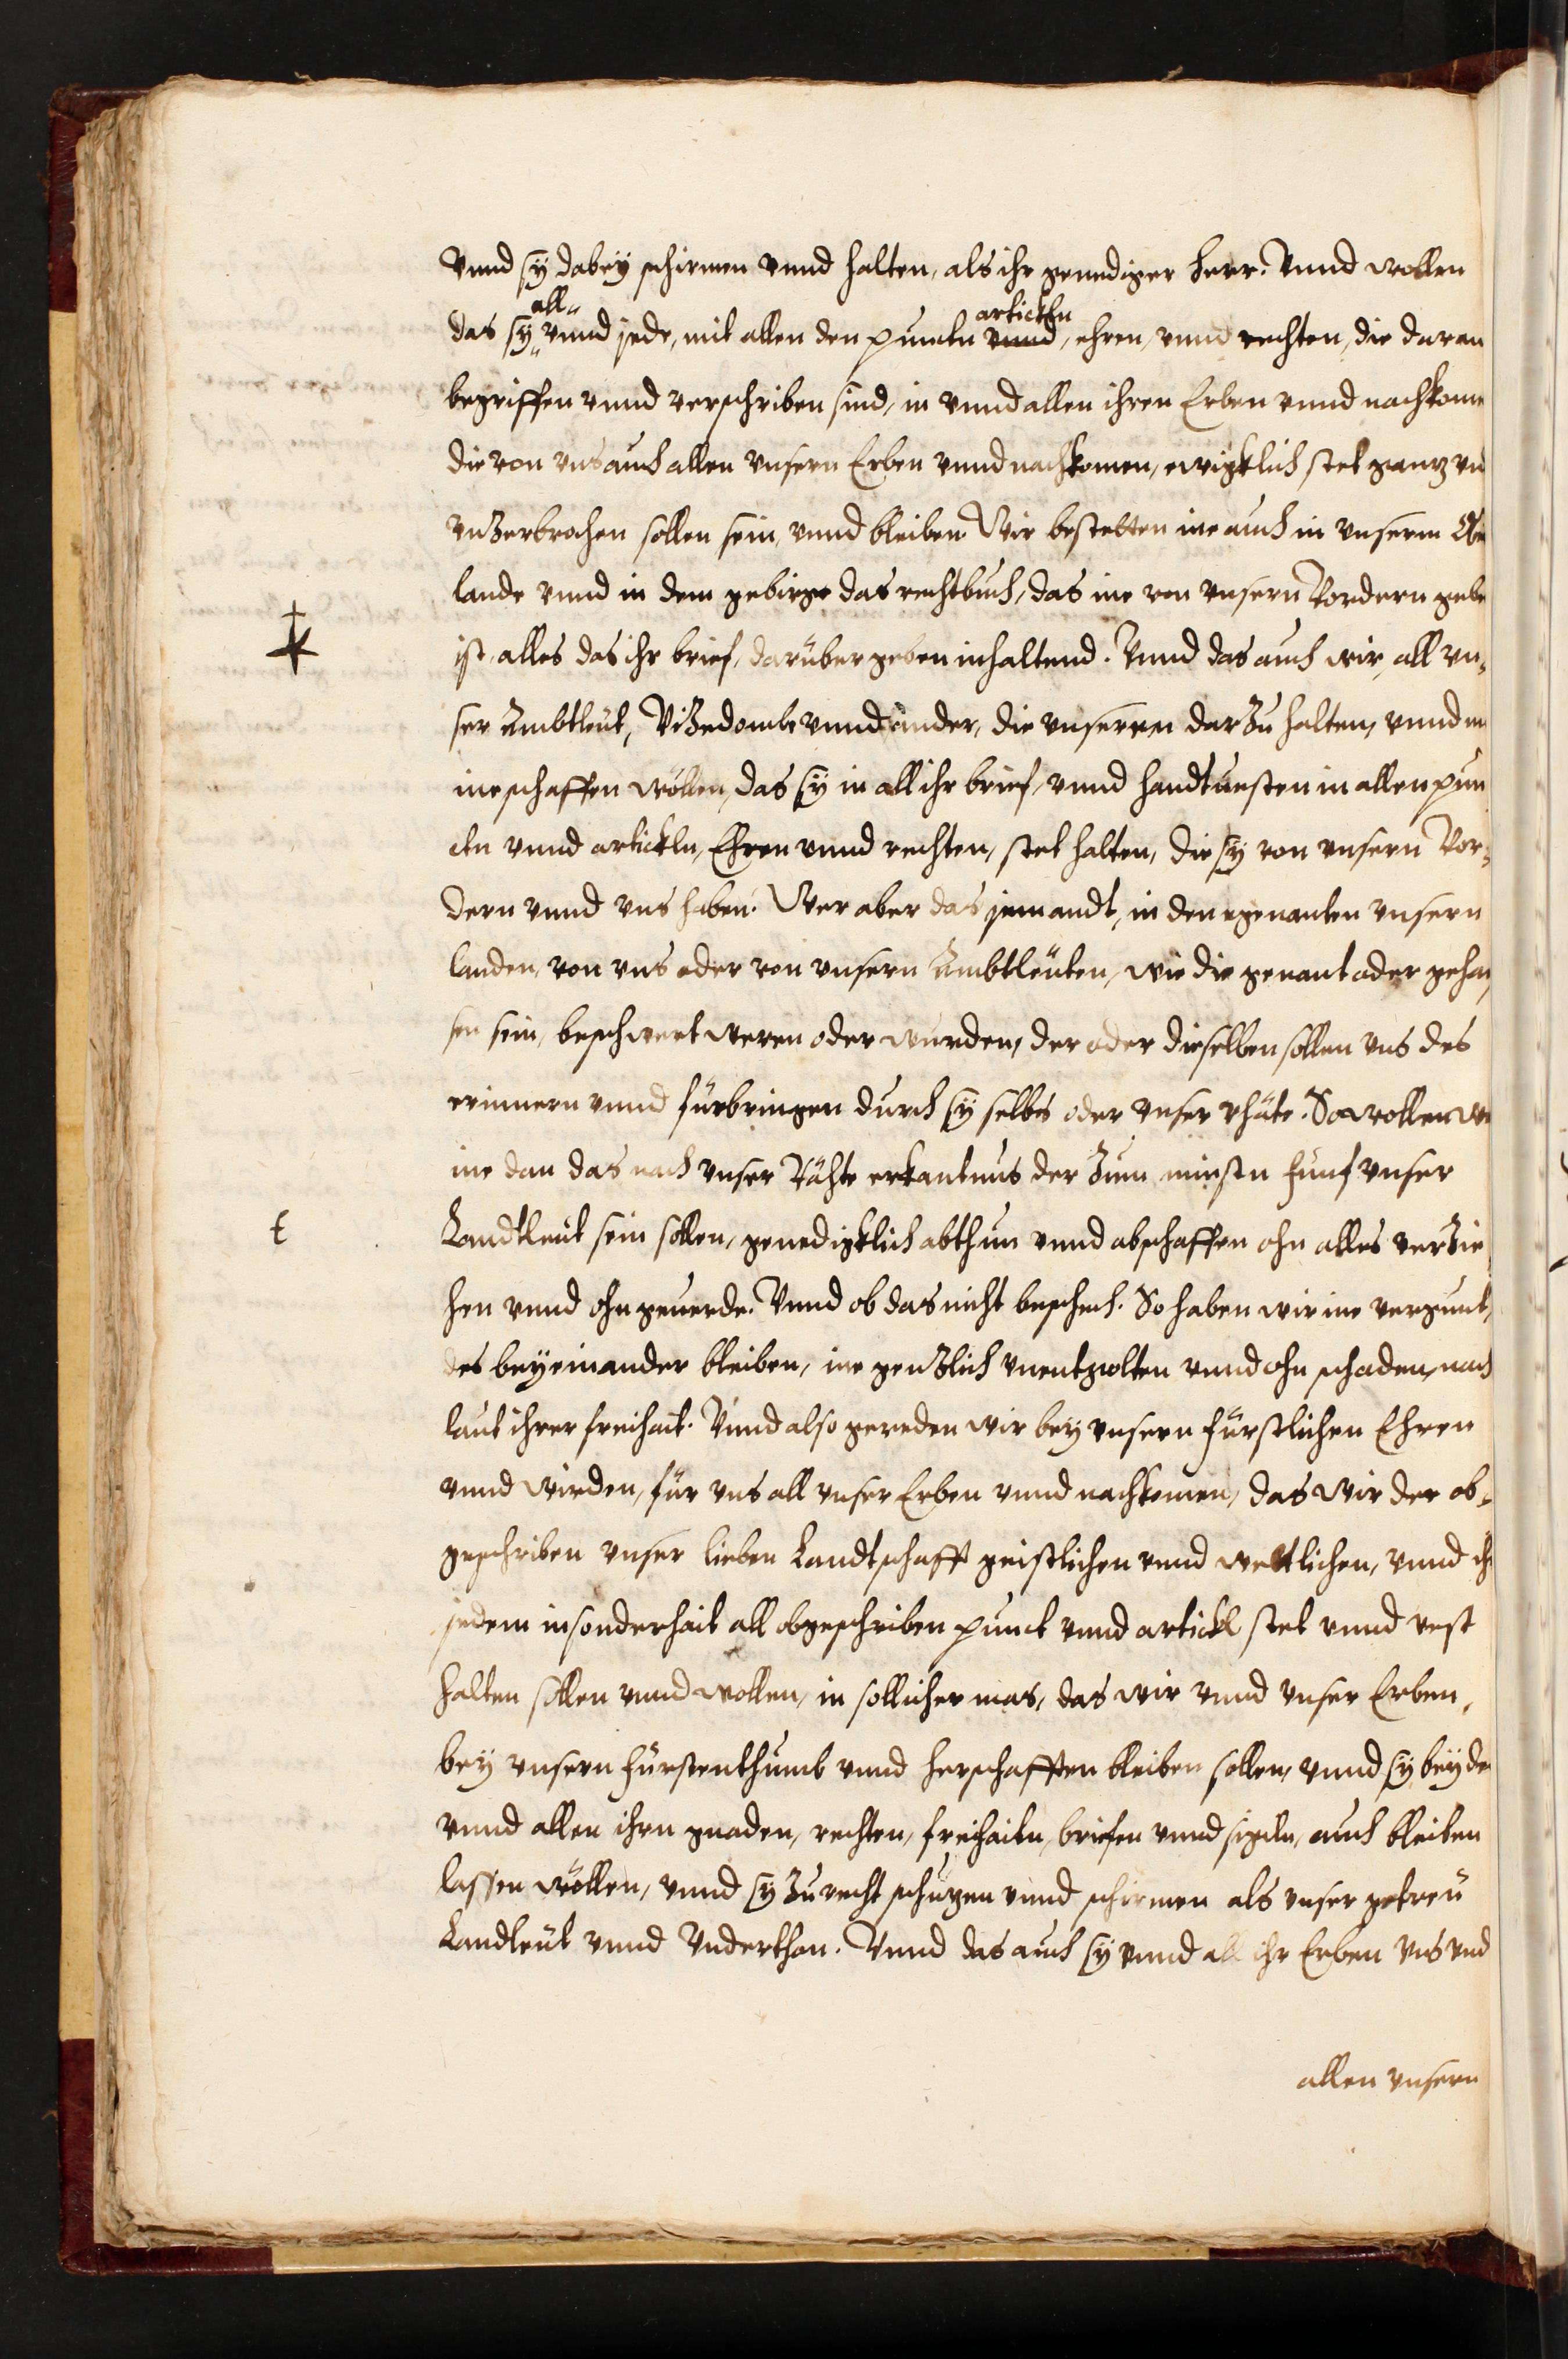 Vnnd sÿ dabeÿ schirmen vnnd halten, als ihr genediger herr. Vnnd wollen
all
artickln
das sÿ vnnd jede, mit allen den puncten vnnd, ehren, vnnd rechten, die daran
begriffen vnnd verschriben sind, in vnnd allen ihren Erben vnnd nachkome
die von vns auch allen vnsern Erben vnnd nachkomen, ewigklich stet ganz vn
vnzerbrochen sollen sein, vnnd bleiben. Wir bestetten ine auch in vnserm Obe
lande vnnd in dem gebirge das rechtbuch, das ine von vnsern Vordern gebe
ist, alles das ihr brief, darüber geben inhaltend. Vnnd das auch wir, all vn¬
ser Ambtleut, Vizedombe vnnd ander, die vnseren darzu halten, vnnd m
ine schaffen wöllen, das sÿ in all ihr brief, vnnd handtuesten in allen pun
cten vnnd artickln, Ehren vnnd rechten, stet halten, die sÿ von vnsern Vor¬
dern vnnd vns haben. Wer aber das jemandt, in den egenanten vnsern
landen, von vns oder von vnsern Ambtleüten, wie die genant oder gehai
sen sein, beschwert weren oder wurden, der oder dieselben sollen vns des
erinnern vnnd fürbringen durch sÿ selbs oder vnser rhäte. So wollen wi
ine dan das nach vnser Rähte erkantnus der zum minsten funf vnser
t
Landtleut sein sollen, genedigklich abthun vnnd abschaffen ohn alles verzie
hen vnnd ohn geuerde. Vnnd ob das nicht beschech. So haben wir ine vergunt,
des beÿeinander bleiben, ine genzlich vnentgolten vnnd ohn schaden, nach
laut ihrer freihait. Vnnd also gereden wir beÿ vnsern fürstlichen Ehren
vnnd wirden, für vns all vnser Erben vnnd nachkomen, das wir der ob¬
geschriben vnser lieben Landtschafft geistlichen vnnd weltlichen, vnnd ih
jedem insonderhait all obgeschriben punct vnnd artickl stet vnnd vest
halten sollen vnnd wollen, in sollicher mas, das wir vnnd vnser Erben,
beÿ vnsern fürstenthumb vnnd herschafften bleiben sollen, vnnd sÿ beÿ de
vnnd allen ihrn gnaden, rechten, freihaiten, briefen vnnd sigeln, auch bleiben
lassen wöllen, vnnd sÿ zu recht schuzen vnnd schirmen als vnser getreü
Landleüt vnnd Vnderthon. Vnnd das auch sÿ vnnd all ihr Erben vns vnd
allen vnsern